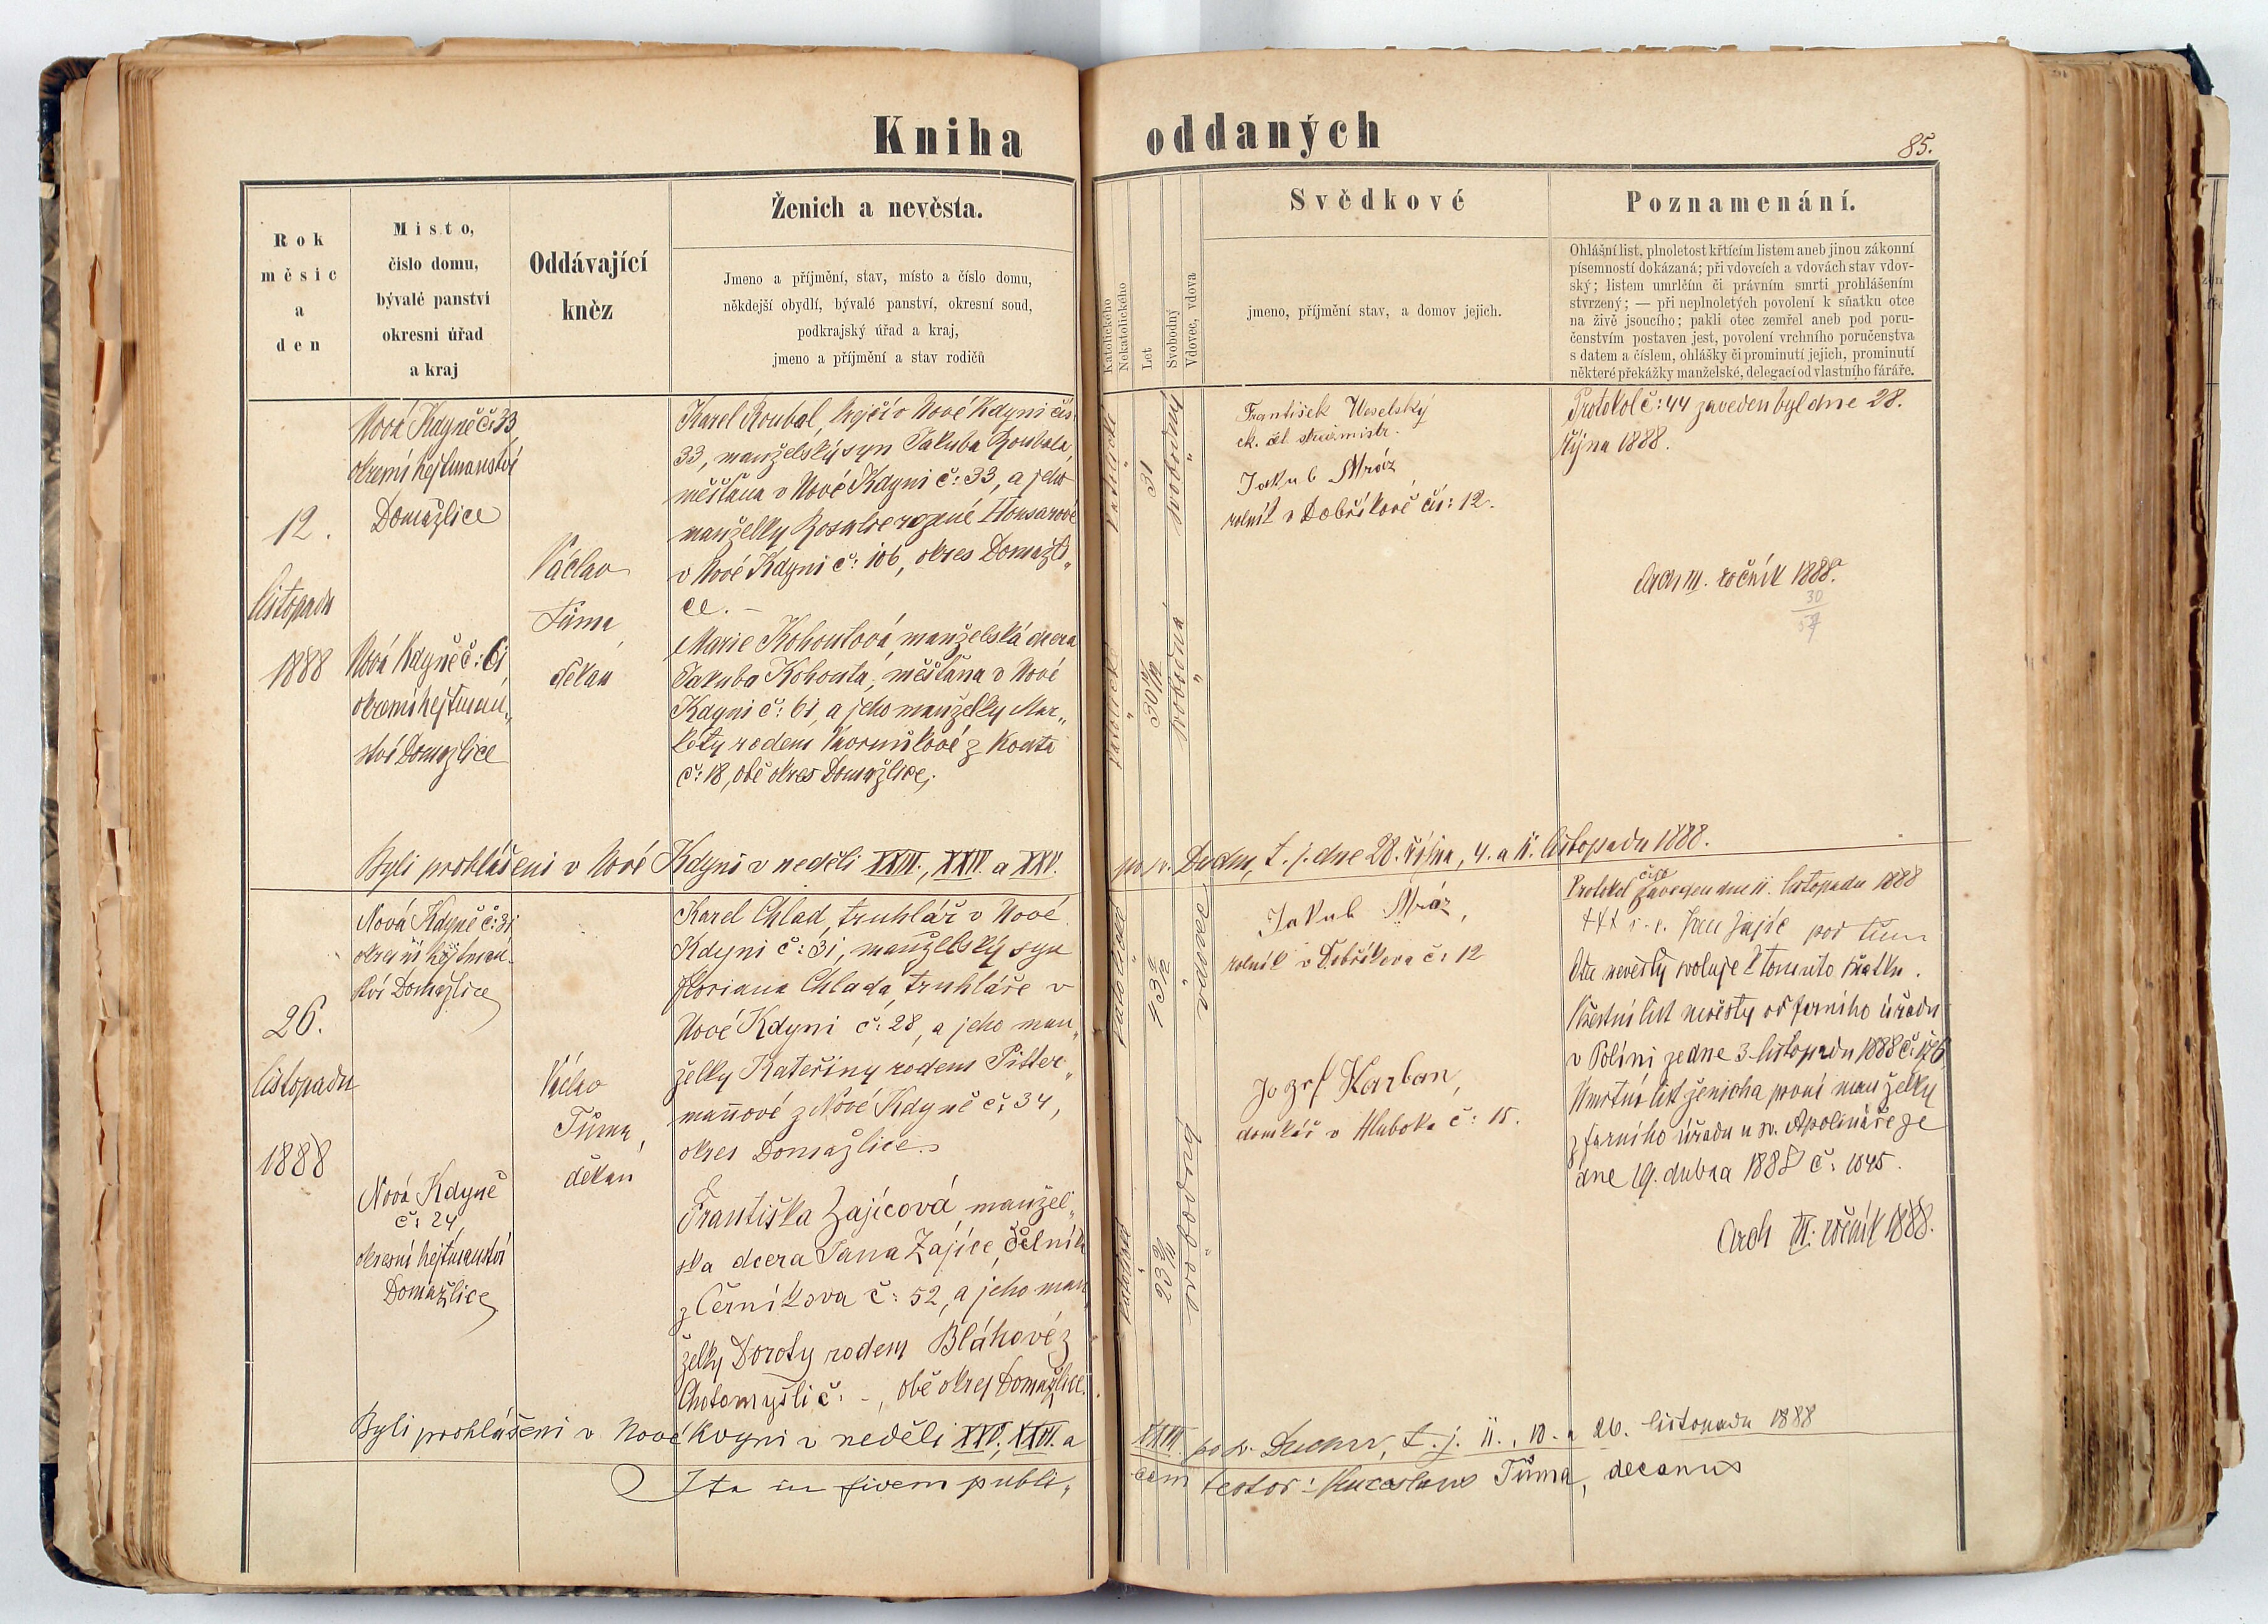 Kniha oddaných
85.
Rok
měsíc
a
den
Místo,
číslo domu,
bývalé panství
okresní úřad
a kraj
Oddávající
kněz
Ženich a nevěsta.
Jmeno a příjmění, stav, místo a číslo domu,
někdejší obydlí, bývalé panství, okresní soud,
podkrajský úřad a kraj,
jmeno a příjmění a stav rodičů
Katolického
Nekatolického
Let
Svobodný
Vdovec, vdova
Svědkové
jmeno, příjmění stav, a domov jejich.
Poznamenání.
Ohlášní list, plnoletost křtícím listem aneb jinou zákonní
písemností dokázaná; při vdovcích a vdovách stav vdov-
ský; listem umrlčím či právním smrti prohlášením
stvrzený; — při neplnoletých povolení k sňatku otce
na živě jsoucího; pakli otec zemřel aneb pod poru-
čenstvím postaven jest, povolení vrchního poručenstva
s datem a číslem, ohlášky či prominutí jejich, prominutí
některé překážky manželské, delegací od vlastního fáráře.
12.
listopadu
1888
Nová Kdyně č: 33
okresní hejtmanství
Domažlice
Nová Kdyně č: 61
okresní hejtman„
ství Domažlice
Václav
Tůma,
děkan
Karel Roubal, krejčí v Nové Kdyni čís:
33, manželský syn Jakuba Roubala,
měšťana v Nové Kdyni č: 33, a jeho
manželky Rosalie rozené Housarové
v Nové Kdyni č: 106, okres Domažli„
ce. —
Marie Kohoutová, manželská dcera
Jakuba Kohouta, měšťana v Nové
Kdyni č: 61, a jeho manželky Mar„
kéty rodem z Kouta
č: 18, obě okres Domažlice.
katolické
31
svobodný
katolické
30
svobodná
František Weselský
ck. stražmistr.
Jakub Mráz
rolník v Dobříkově čís: 12.
Protokol č: 44 zaveden byl dne 28.
října 1888.
Arch III. ročník 1888.
30
Byli prohlášeni v Nové Kdyni v neděli XXIII., XXIV. a XXV. po sv. Duchu, t. j. dne 28. října, 4. a 11. listopadu 1888.
26.
listopadu
1888
Nová Kdyně č: 31
okresní hejtman-
ství Domažlice
Nová Kdyně
č: 24,
okresní hejtmanství
Domažlice
Václav
Tůma,
děkan
Karel Chlad, truhlář v Nové
Kdyni č: 31, manželský syn
Floriana Chlada, truhláře v
Nové Kdyni č: 28, a jeho man„
želky Kateřiny rodem Pitter„
mannové z Nové Kdyně č: 34,
okres Domažlice.
Františka Zajícová manžel„
ska dcera Jana Zajíce,
z Černíkova č: 52, a jeho man„
želky Doroty rodem Bláhové z
Chotomyšli č: -, obě okres Domažlice.
katolické
43
vdovec
katolické
23
svobodná
Jakub Mráz,
rolník v Dobříkova č: 12
Jozef Karban,
domkář v Hluboké č: 15.
Protokol číslo zaveden dne 11. listopadu 1888
+++ Jan Zajíc
Otec nevěsty svoluje k tomuto sňatku.
Křestní list nevěsty od farního úřadu
v Políni ze dne 3. listopadu 1888 č: 126,
Umrtní list ženicha první manželky
z farního úřadu u sv. Apolináře ze
dne 19. dubna 1888 č: 1045.
Arch III. ročník 1888.
Byli prohlášeni v Nové Kdyni v neděli XXV., XXVI. a XXVII. po sv. Duchu, t. j. 11., 18. a 26. listopadu 1888
Ita in fidem publi„ cam testor: Tůma, decanus